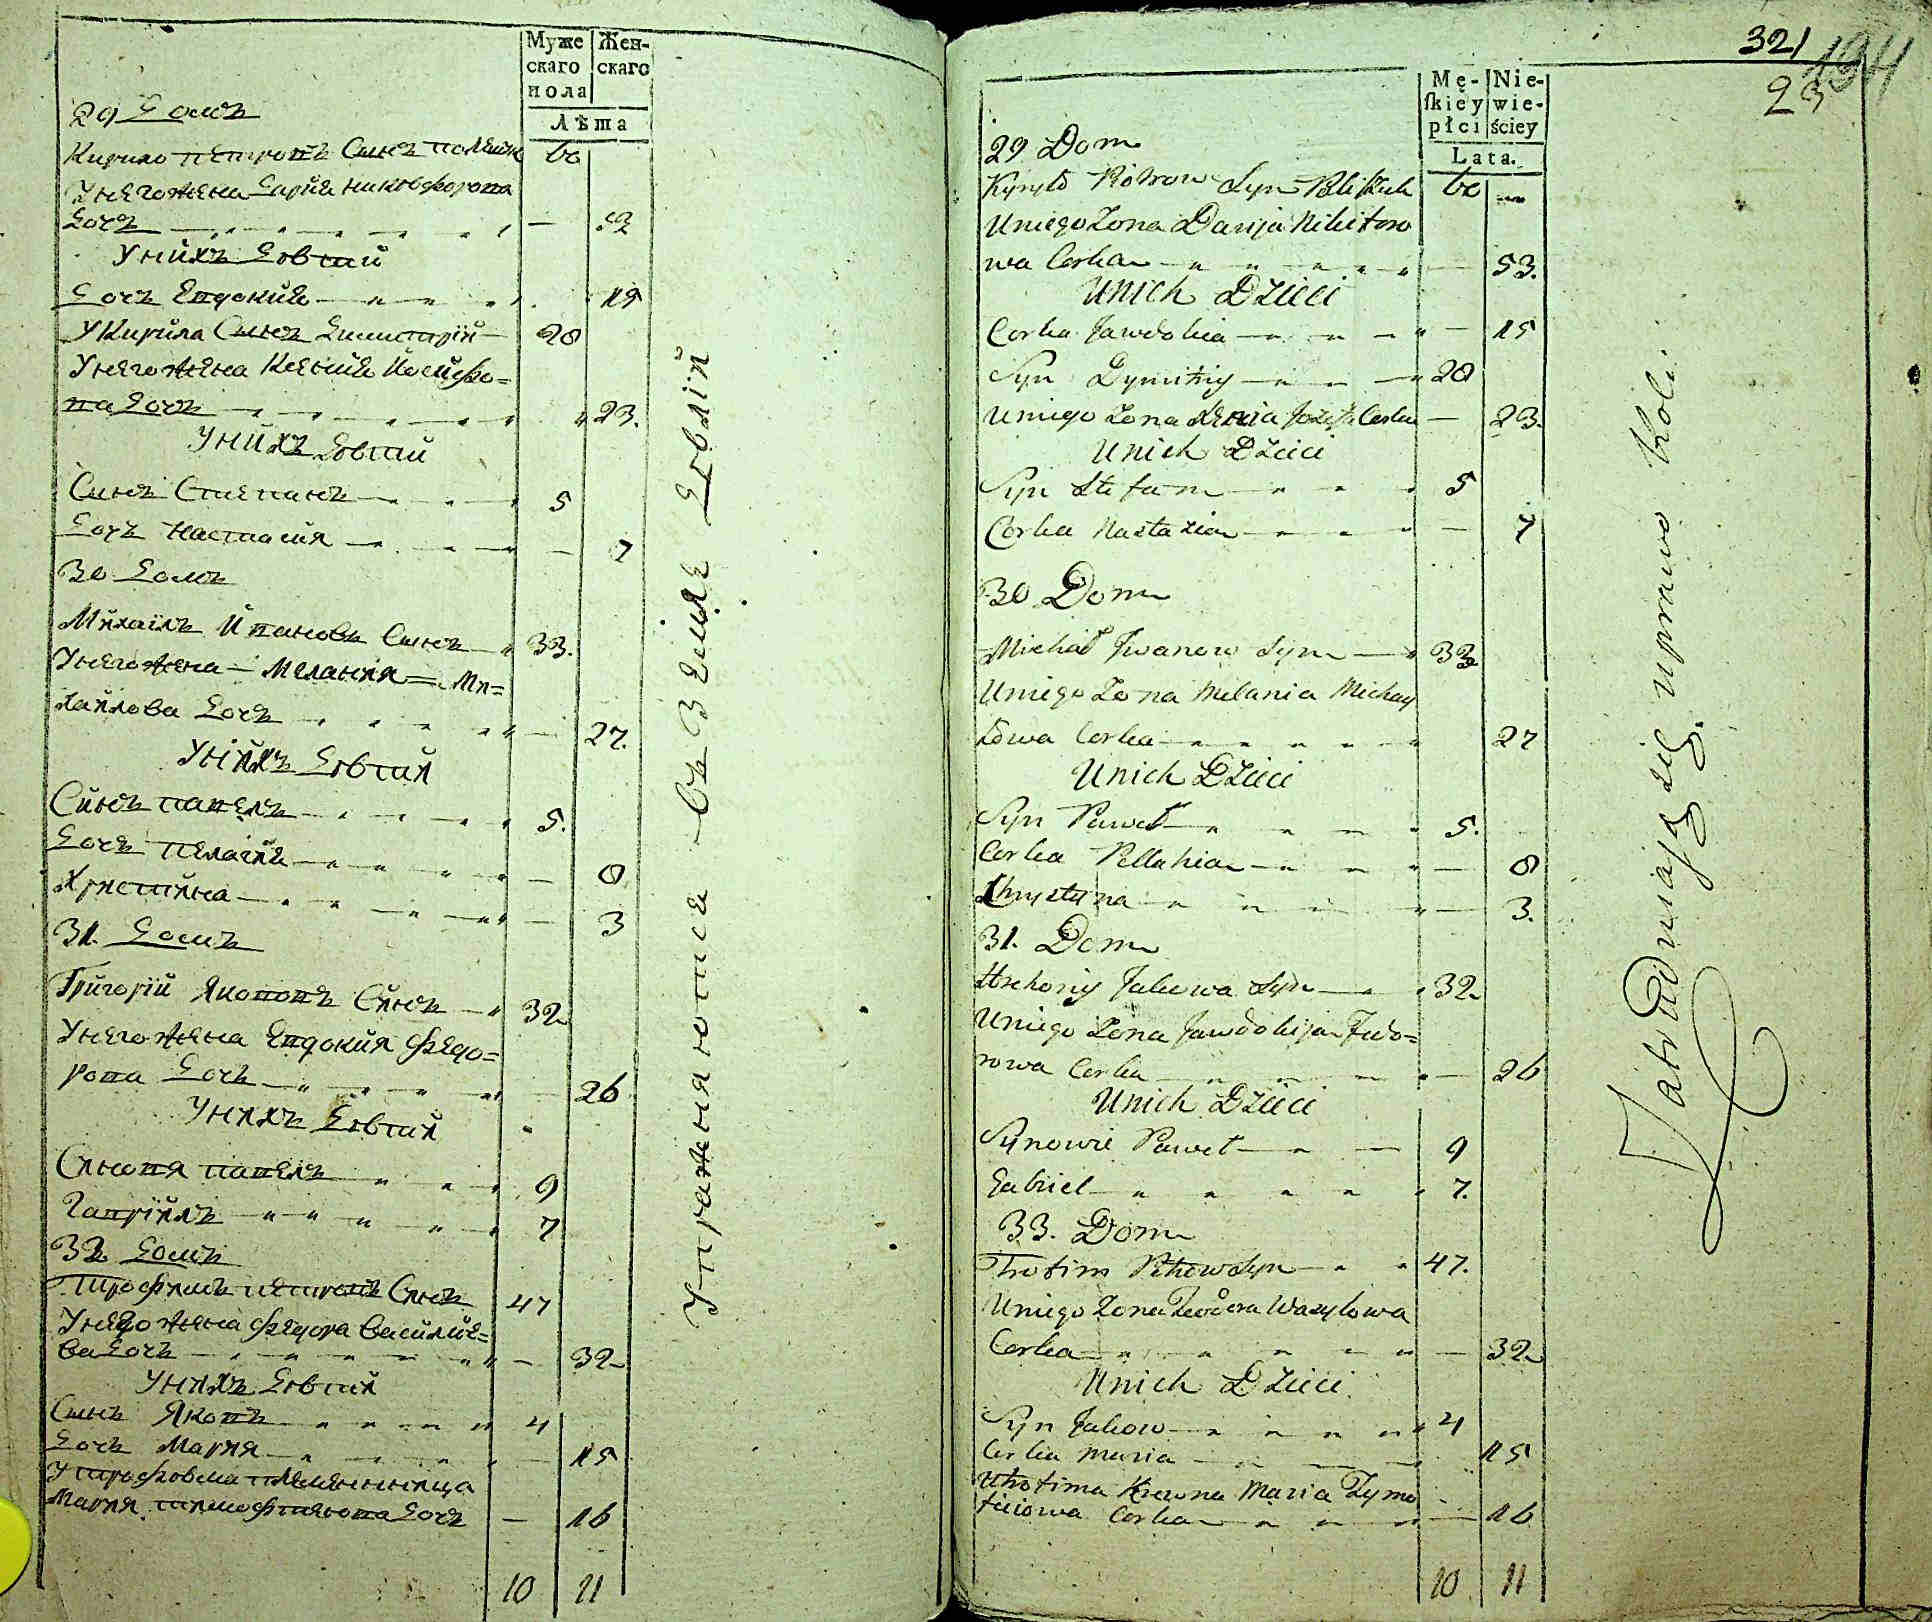 Муже
скаго
пола
Жен-
скаго
Лѣта
29 Домъ
Кирило Петровъ Сынъ 60
Унего жена Дарія Никифорова
Дочъ — 52
Унихъ Дѣтий
Дочъ Евдокия 15
У Кирила Сынъ Димитрій 28
Унего жена Ксения Йосифо=
ва Дочъ 23.
Унихъ Дѣтий
Сынъ Степанъ 5
Дочъ Настасия — 7
30 Домъ
Михаілъ Ивановъ Сынъ 33.
Унего жена Мелания Ми=
хайлова Дочъ — 27.
Унихъ Дѣтий
Синъ Павелъ 5.
Дочъ Пелагія — 8
Христина — 3
31. Домъ
Григорій Якововъ Синъ 32
Унего жена Евдокия Федо=
рова Дочъ — 26
Унихъ Дѣтий
Синовя Павелъ 9
Гаврійлъ 7
32 Домъ
Трофимъ Петровъ Синъ 47
Унего жена Федора Василие=
ва Дочъ — 32
Унихъ Дѣтий
Сынъ Яковъ 4
Дочъ Мария — 15
У Трофима племенница
Мария Тимофтеева Дочъ — 16
10 11
Упражняются въ Землѣ Дѣлій
321
194
23
Mę-
ſkiey
płci
Nie-
wie-
ściey
Lata.
29 Dom
Kyryło Piotrow Syn 60 —
Uniego Zona Daryja Nikiforo
wa Corka — 53.
Unich Dzieci
Corka Jawdokia — 15
Syn Dymitriy 28
Uniego Zona Xenia Jozefa Corka — 23.
Unich Dzieci
Syn Stefan 5
Corka Nastazia — 7
30 Dom
Michał Jwanow Syn 33
Uniego Zona Melania Michay
łowa Corka 27
Unich Dzieci
Syn Paweł 5.
Corka Pellahia — 8
Chrystyna — 3.
31. Dom
Hrehoriy Jakowa Syn 32
Uniego Zona Jawdokija Fedo=
rowa Corka — 26
Unich Dzieci
Synowie Paweł 9
Gabriel 7.
33. Dom
Trofim Petrow Syn 47.
Uniego Zona Teodora Wasylowa
Corka — 32
Unich Dzieci
Syn Jakow 4
Corka Maria 15
Utrofima Krewna Maria Tymo
ficiowa Corka — 16
10 11
Zatrudniają się uprawą Roli.